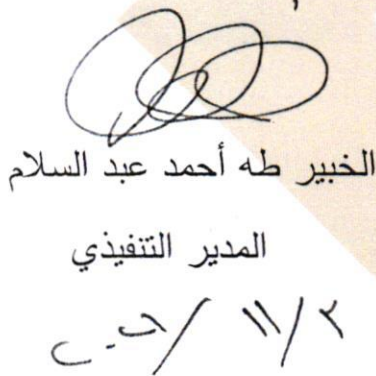 الخبير طه أحمد عبد السلام
المدير التنفيذي
٢ / ١١ /